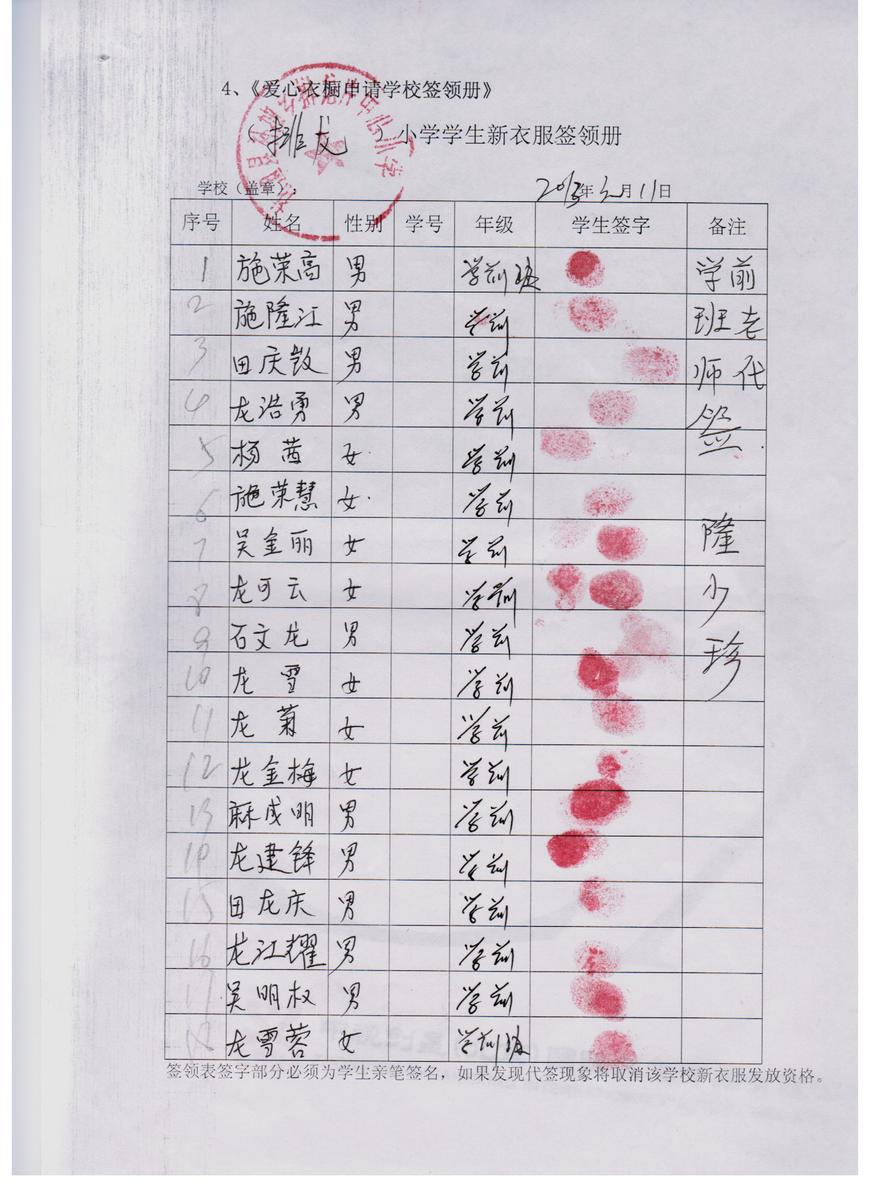 4、《爱心衣橱申请学校签领册》
（排龙）小学学生新衣服签领册
学校（盖章）： 年 月11日
序号 姓名 性别 学号 年级 学生签字 备注
1 施荣高 男 学前班 学前
2 施隆江 男 学前 班老
3 田庆 男 学前 师代
4 龙浩勇 男 学前 签.
5 杨茜 女 学前
6 施荣慧 女 学前
7 吴金丽 女 学前 隆
8 龙可云 女 学前 少
9 石文龙 男 学前 珍
10 龙雪 女 学前
11 龙菊 女 学前
12 龙金梅 女 学前
13 麻成明 男 学前
14 龙建锋 男 学前
15 田龙庆 男 学前
16 龙江耀 男 学前
17 吴明权 男 学前
18 龙雪蓉 女 学前班
签领表签字部分必须为学生亲笔签名，如果发现代签现象将取消该学校新衣服发放资格。